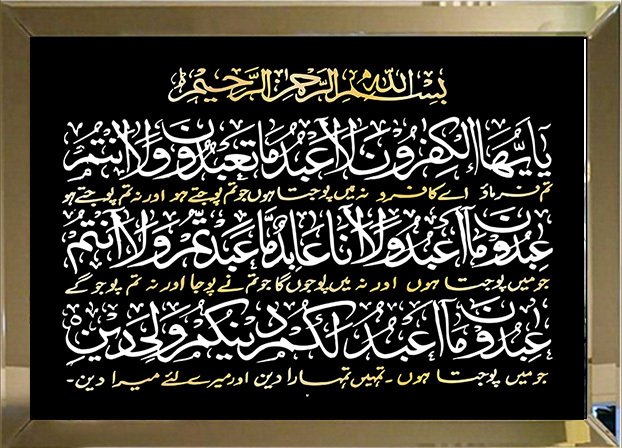 بسم الله الرحمن الرحيم
يا يها الكفرون لا أعبد ما تعبدون ولا أنتم
تم فرماؤ اے کافرو نہ میں پوجتا ہوں جو تم پوجتے ہو اور نہ تم پوجتے ہو
عبدون ما أعبد ولا أنا عابد ما عبدتم ولا أنتم
جو میں پوجتا ہوں اور نہ میں پوجوں گا جو تم نے پوجا اور نہ تم پوجو گے
عبدون ما أعبد لكم دينكم ولي دين
جو میں پوجتا ہوں ۔ تمہیں تمہارا دین اور میرے لئے میرا دین ۔